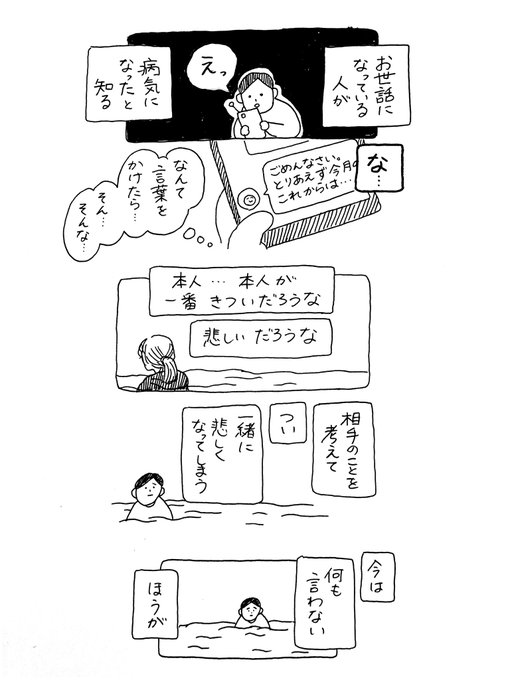 お世話に
なっている
人が
えっ
病気に
なったと
知る
な…
ごめんなさい。
とりあえず今月の
これからは…
なんて
言葉を
かけたら…
そん…
そんな…
本人… 本人が
一番 きついだろうな
悲しいだろうな
相手のことを
考えて
つい
一緒に
悲しく
なってしまう
今は
何も
言わない
ほうが